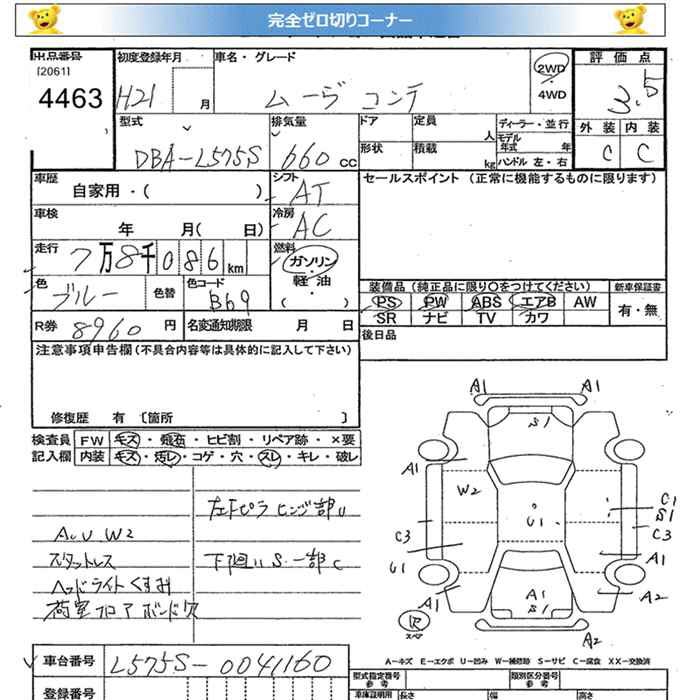 完全ゼロ切りコーナー
出品番号 初度登録年月 車名・グレード 評価点
[2061]
4463 H21 月 ムーヴ コンテ 2WD ・ 4WD 3.5
型式 排気量 ドア 定員 人 ディーラー・並行 外装 内装
DBA-L575S 660 cc 形状 積載 kg モデル年式 年 C C
ハンドル 左・右
車歴 シフト セールスポイント (正常に機能するものに限ります)
自家用・( ) AT
車検 冷房
年 月( 日) AC
走行 燃料
7万8千086km ガソリン・軽油・( )
色 色替 色コード 装備品 (純正品に限り○をつけてください) 新車保証書
ブルー B69 PS PW ABS エアB AW 有・無
SR ナビ TV カワ
R券 8960 円 名変通知期限 月 日 後日品
注意事項申告欄(不具合内容等は具体的に記入して下さい)
修復歴 有 〔箇所 〕
検査員 FW キズ・ ・ヒビ割・リペア跡・×要
記入欄 内装 キズ・汚レ・コゲ・穴・スレ・キレ・破レ
左Fピラ ヒンジ部U
A.U.W2
スタットレス 下廻りS.一部C
ヘッドライトくすみ
荷室フロアボンド欠
A1 A1
S1
A1
W2
U1
C1
S1
C3 C3
U1 A1
A1 A1 A2
S1
スペア
A2
車台番号 L575S-0041160
A-キズ E-エクボ U-凹み W-補修跡 S-サビ C-腐食 XX-交換済
登録番号 型式指定番号 参考 類別区分番号 参考
車庫証明用 長さ 幅 高さ